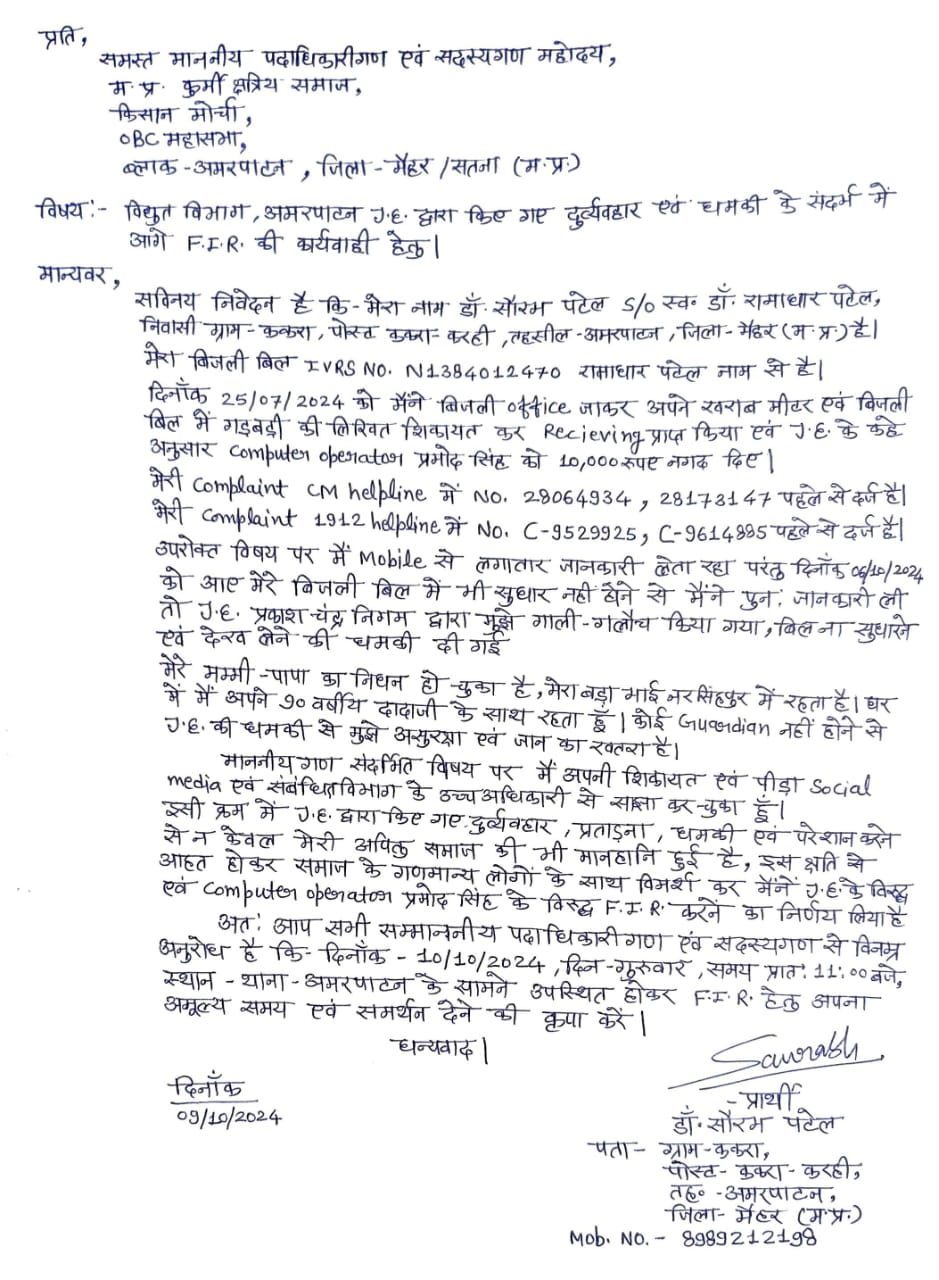 प्रति,
समस्त माननीय पदाधिकारीगण एवं सदस्यगण महोदय,
म.प्र. कुर्मी क्षत्रिय समाज,
किसान मोर्चा,
OBC महासभा,
ब्लाक-अमरपाटन, जिला-मैहर/सतना (म.प्र.)
विषय:- विद्युत विभाग, अमरपाटन J.E. द्वारा किए गए दुर्व्यवहार एवं धमकी के संदर्भ में
आगे F.I.R. की कार्यवाही हेतु।
मान्यवर,
सविनय निवेदन है कि-मेरा नाम डॉ. सौरभ पटेल S/o स्व॰ डॉ. रामाधार पटेल,
निवासी ग्राम-ककरा, पोस्ट ककरा-करही, तहसील-अमरपाटन, जिला-मैहर (म.प्र.) है।
मेरा बिजली बिल IVRS NO. N1384012470 रामाधार पटेल नाम से है।
दिनाँक 25/07/2024 को मैंने बिजली office जाकर अपने खराब मीटर एवं बिजली
बिल में गड़बड़ी की लिखित शिकायत कर Recieving प्राप्त किया एवं J.E. के कहे
अनुसार Computer operator प्रमोद सिंह को 10,000 रुपए नगद दिए।
मेरी Complaint CM helpline में NO. 28064934, 28173147 पहले से दर्ज है।
मेरी Complaint 1912 helpline में No. C-9529925, C-9614885 पहले से दर्ज है।
उपरोक्त विषय पर मैं Mobile से लगातार जानकारी लेता रहा परंतु दिनाँक 06/10/2024
को आए मेरे बिजली बिल में भी सुधार नहीं होने से मैंने पुन: जानकारी ली
तो J.E. प्रकाश चंद्र निगम द्वारा मुझे गाली-गलौच किया गया, बिल ना सुधारने
एवं देख लेने की धमकी दी गई
मेरे मम्मी-पापा का निधन हो चुका है, मेरा बड़ा भाई नरसिंहपुर में रहता है। घर
में मैं अपने 90 वर्षीय दादाजी के साथ रहता हूँ। कोई Guardian नहीं होने से
J.E. की धमकी से मुझे असुरक्षा एवं जान का खतरा है।
माननीयगण संदर्भित विषय पर मैं अपनी शिकायत एवं पीड़ा Social
media एवं संबंधित विभाग के उच्च अधिकारी से साझा कर चुका हूँ।
इसी क्रम में J.E. द्वारा किए गए दुर्व्यवहार, प्रताड़ना, धमकी एवं परेशान करने
से न केवल मेरी अपितु समाज की भी मानहानि हुई है, इस क्षति से
आहत होकर समाज के गणमान्य लोगों के साथ विमर्श कर मैंने J.E. के विरुद्ध
एवं Computer operator प्रमोद सिंह के विरुद्ध F.I.R. करने का निर्णय लिया है
अत: आप सभी सम्माननीय पदाधिकारीगण एवं सदस्यगण से विनम्र
अनुरोध है कि- दिनाँक - 10/10/2024, दिन-गुरुवार, समय प्रात: 11:00 बजे,
स्थान - थाना-अमरपाटन के सामने उपस्थित होकर F.I.R. हेतु अपना
अमूल्य समय एवं समर्थन देने की कृपा करें।
धन्यवाद।
Saurabh
दिनाँक
09/10/2024
-प्रार्थी
डॉ. सौरभ पटेल
पता- ग्राम-ककरा,
पोस्ट- ककरा-करही,
तह॰ -अमरपाटन,
जिला- मैहर (म.प्र.)
Mob. NO. - 8989212198